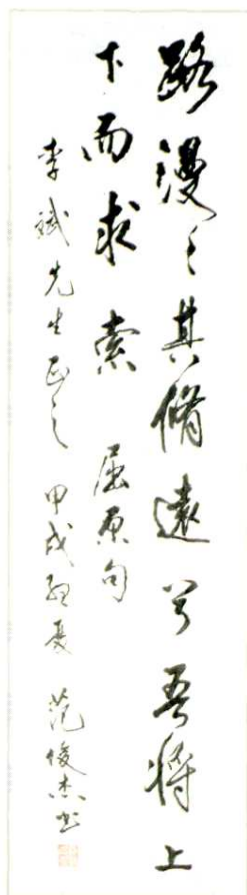 路漫々其脩遠兮吾将上
下而求索 屈原句
李斌先生正之 甲戌孟夏 范俊杰书